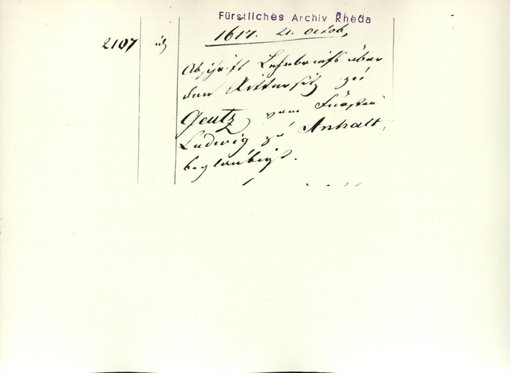 Fürstliches Archiv Rheda
2107
1617. 21. Octob,
Abschrift Lehnbriefs über
den Rittersitz zu
Geutz, vom Fürsten
Ludwig zu Anhalt,
beglaubigt.